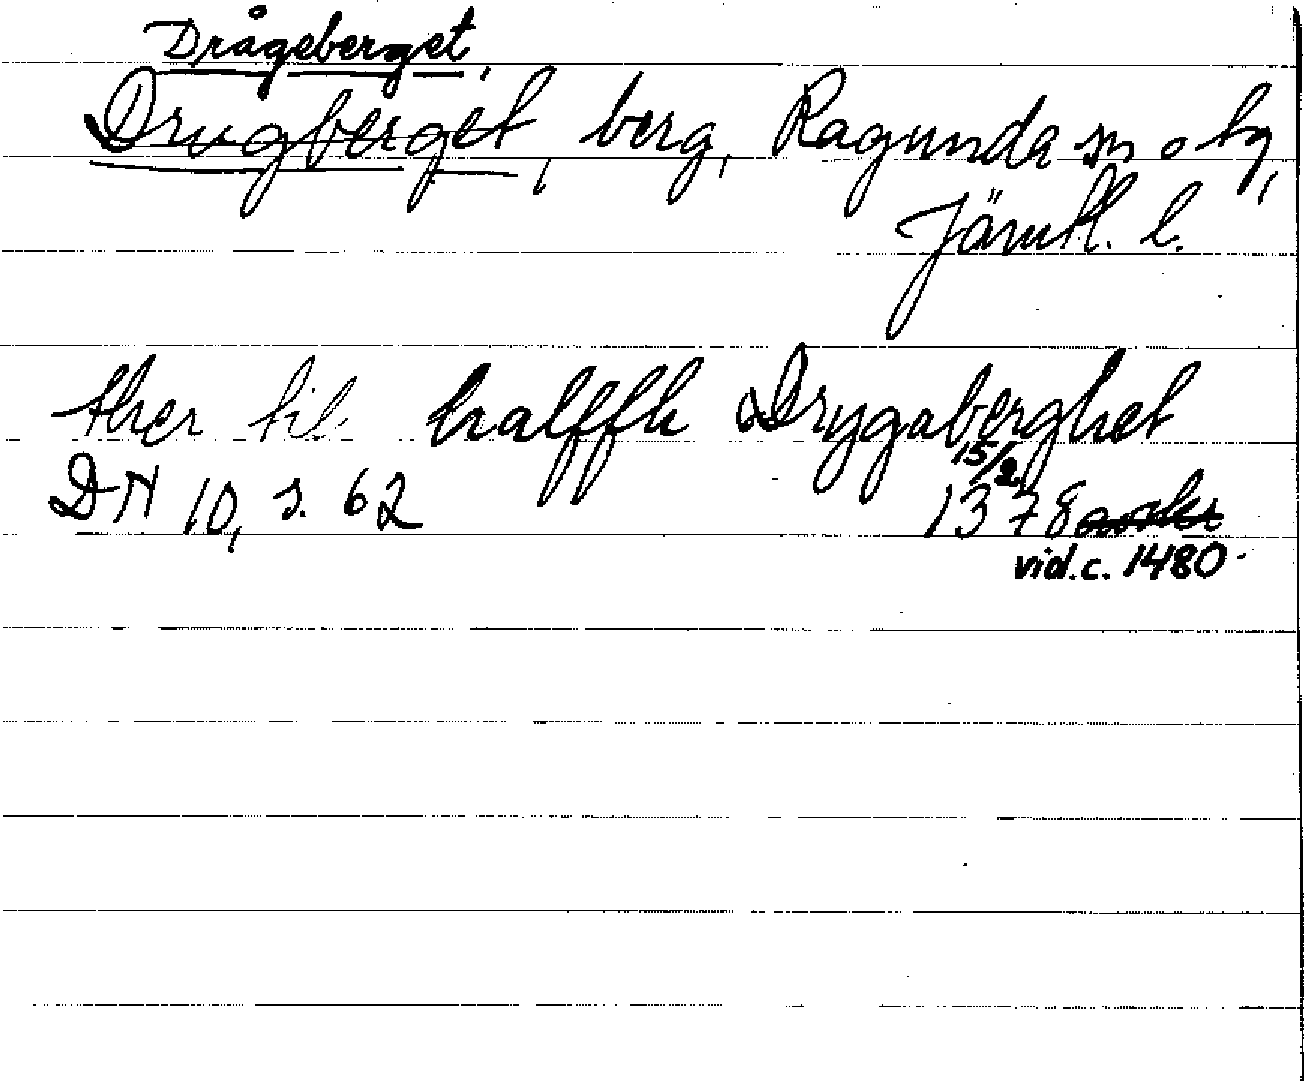 Drågeberget,
Drugberget, berg, Ragunda sn o tg,
Jämtl. l.
ther til halffk Drygaberghet
15/2
DN 10, s. 62 1378 avskr
vid. c. 1480